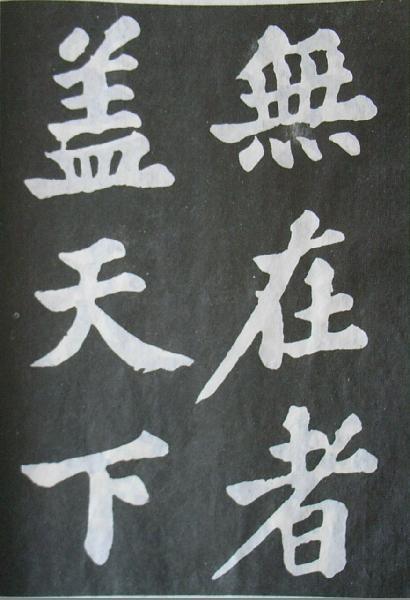 無在者
盖天下